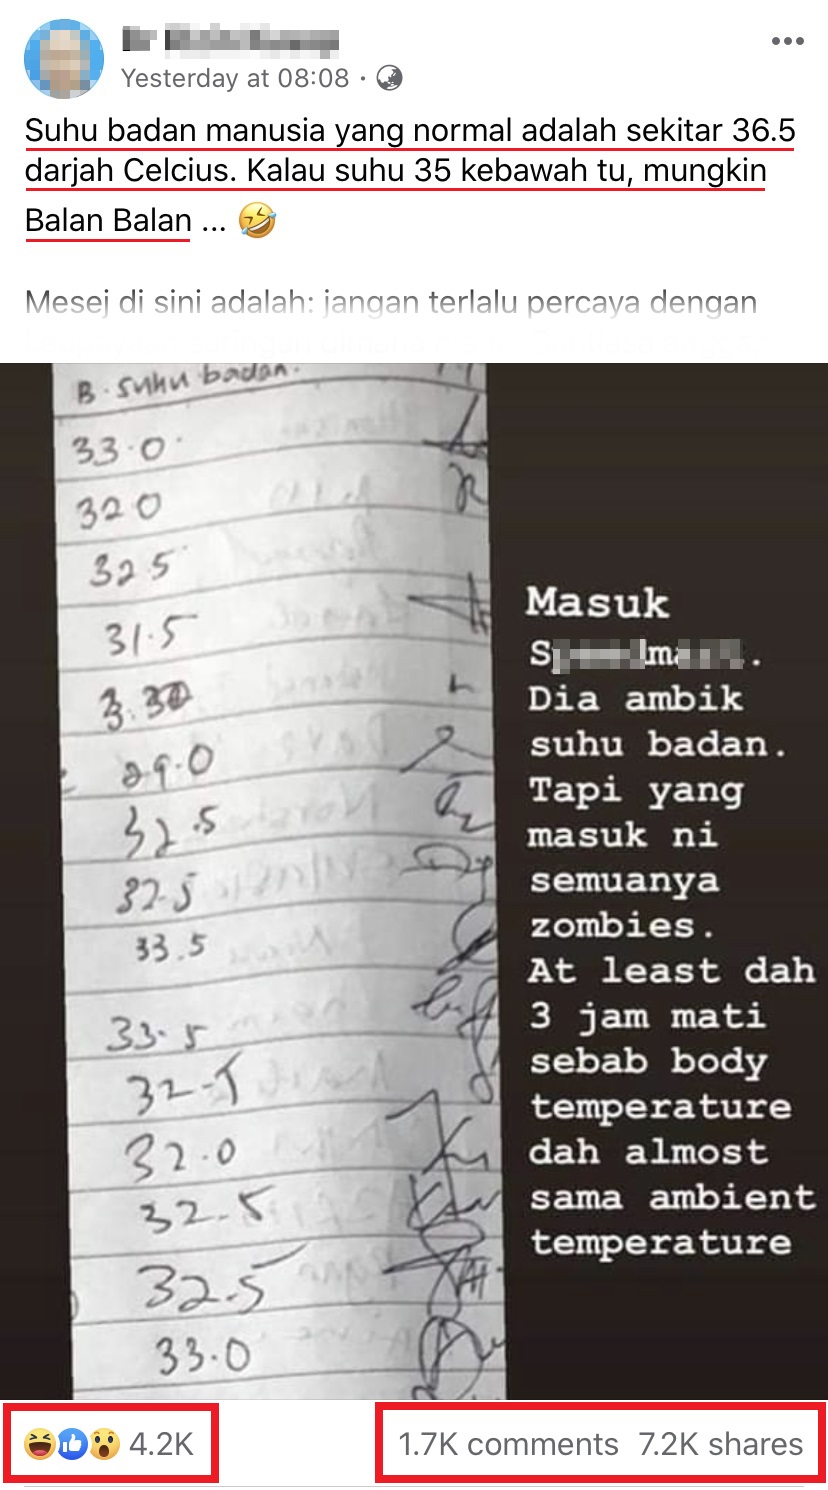 Yesterday at 08:08 ·
Suhu badan manusia yang normal adalah sekitar 36.5
darjah Celcius. Kalau suhu 35 kebawah tu, mungkin
Balan Balan ... 🤣
Mesej di sini adalah: jangan terlalu percaya dengan
B. suhu badan.
33.0
320
325
31.5
3.30
29.0
32.5
32.5
33.5
33.5
32.5
32.0
32.5
32.5
33.0
Masuk
Dia ambik
suhu badan.
Tapi yang
masuk ni
semuanya
zombies.
At least dah
3 jam mati
sebab body
temperature
dah almost
sama ambient
temperature
4.2K
1.7K comments 7.2K shares